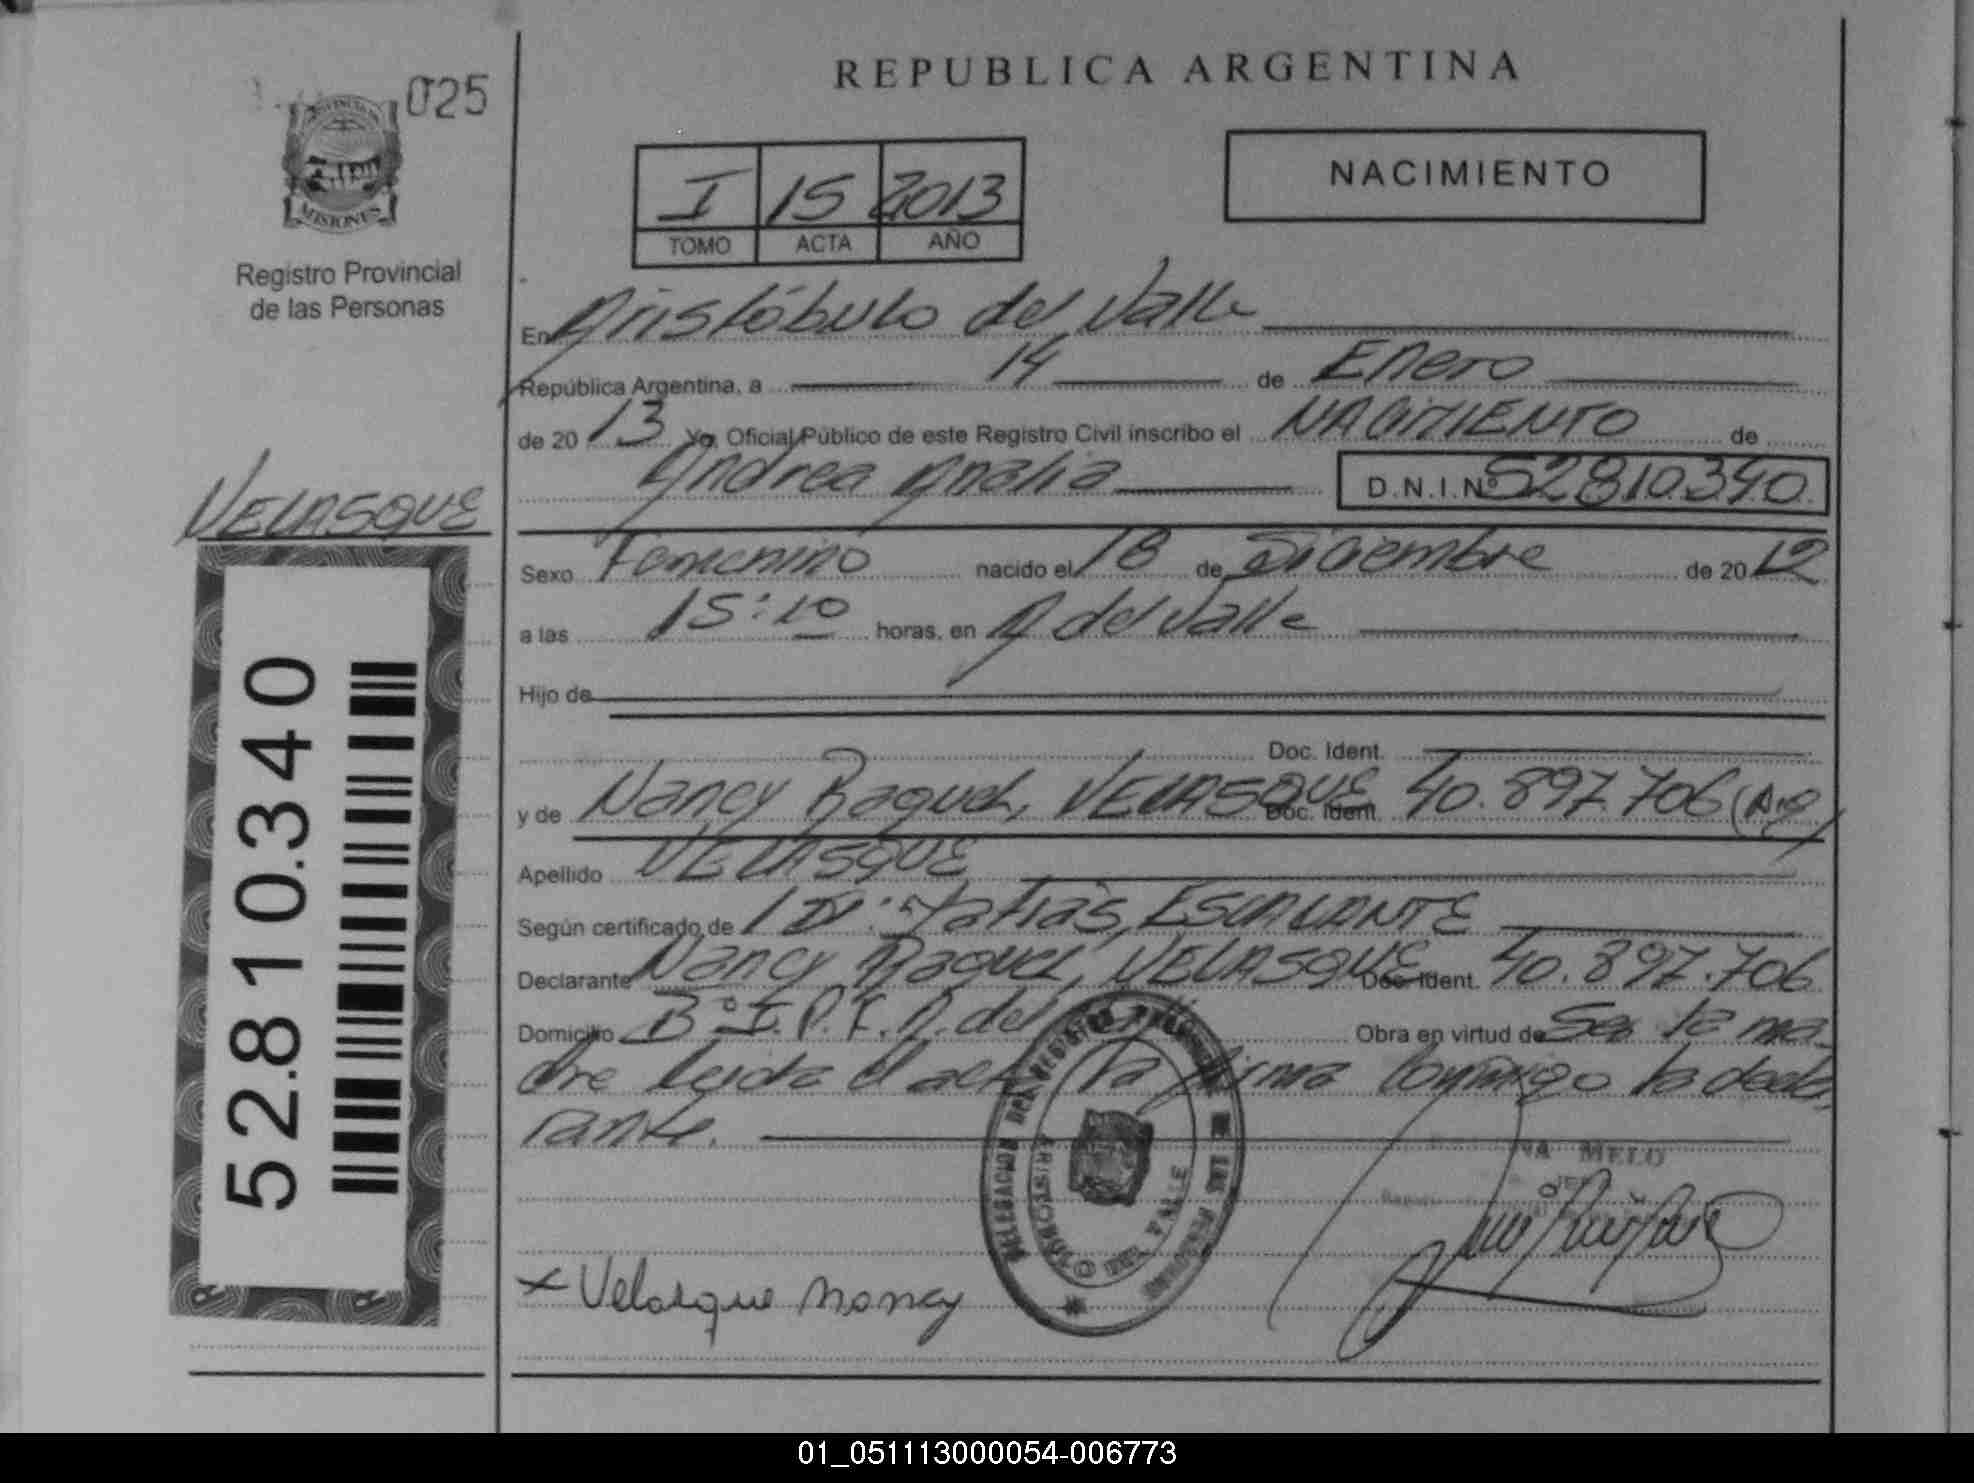 REPUBLICA ARGENTINA
025
MISIONES
Registro Provincial
de las Personas
I 15 2013
TOMO ACTA AÑO
NACIMIENTO
En Aristóbulo del Valle
República Argentina, a 14 de Enero
de 20 13 Yo, Oficial Público de este Registro Civil inscribo el NACIMIENTO de
Andrea Analia D.N.I.Nº 52810.340
VELASQUE
Sexo Femenino nacido el 18 de Diciembre de 20 12
a las 15:10 horas, en A del Valle
Hijo de
Doc. Ident.
y de Nancy Raquel, VELASQUE Doc. Ident. 40.897.706 (Arg)
Apellido VELASQUE
Según certificado de Matias, ESCALANTE
Declarante Nancy Raquel, VELASQUE Doc. Ident. 40.897.706
Domicilio Bº I.P.F. A. del Obra en virtud de Ser la ma
dre leida el acta la firma conmigo la decla
rante.
52.810.340
DELEGACION DEL REGISTRO PROVINCIAL DE LAS PERSONAS
ARISTOBULO DEL VALLE
MELO
x Velasque nancy
01_051113000054-006773